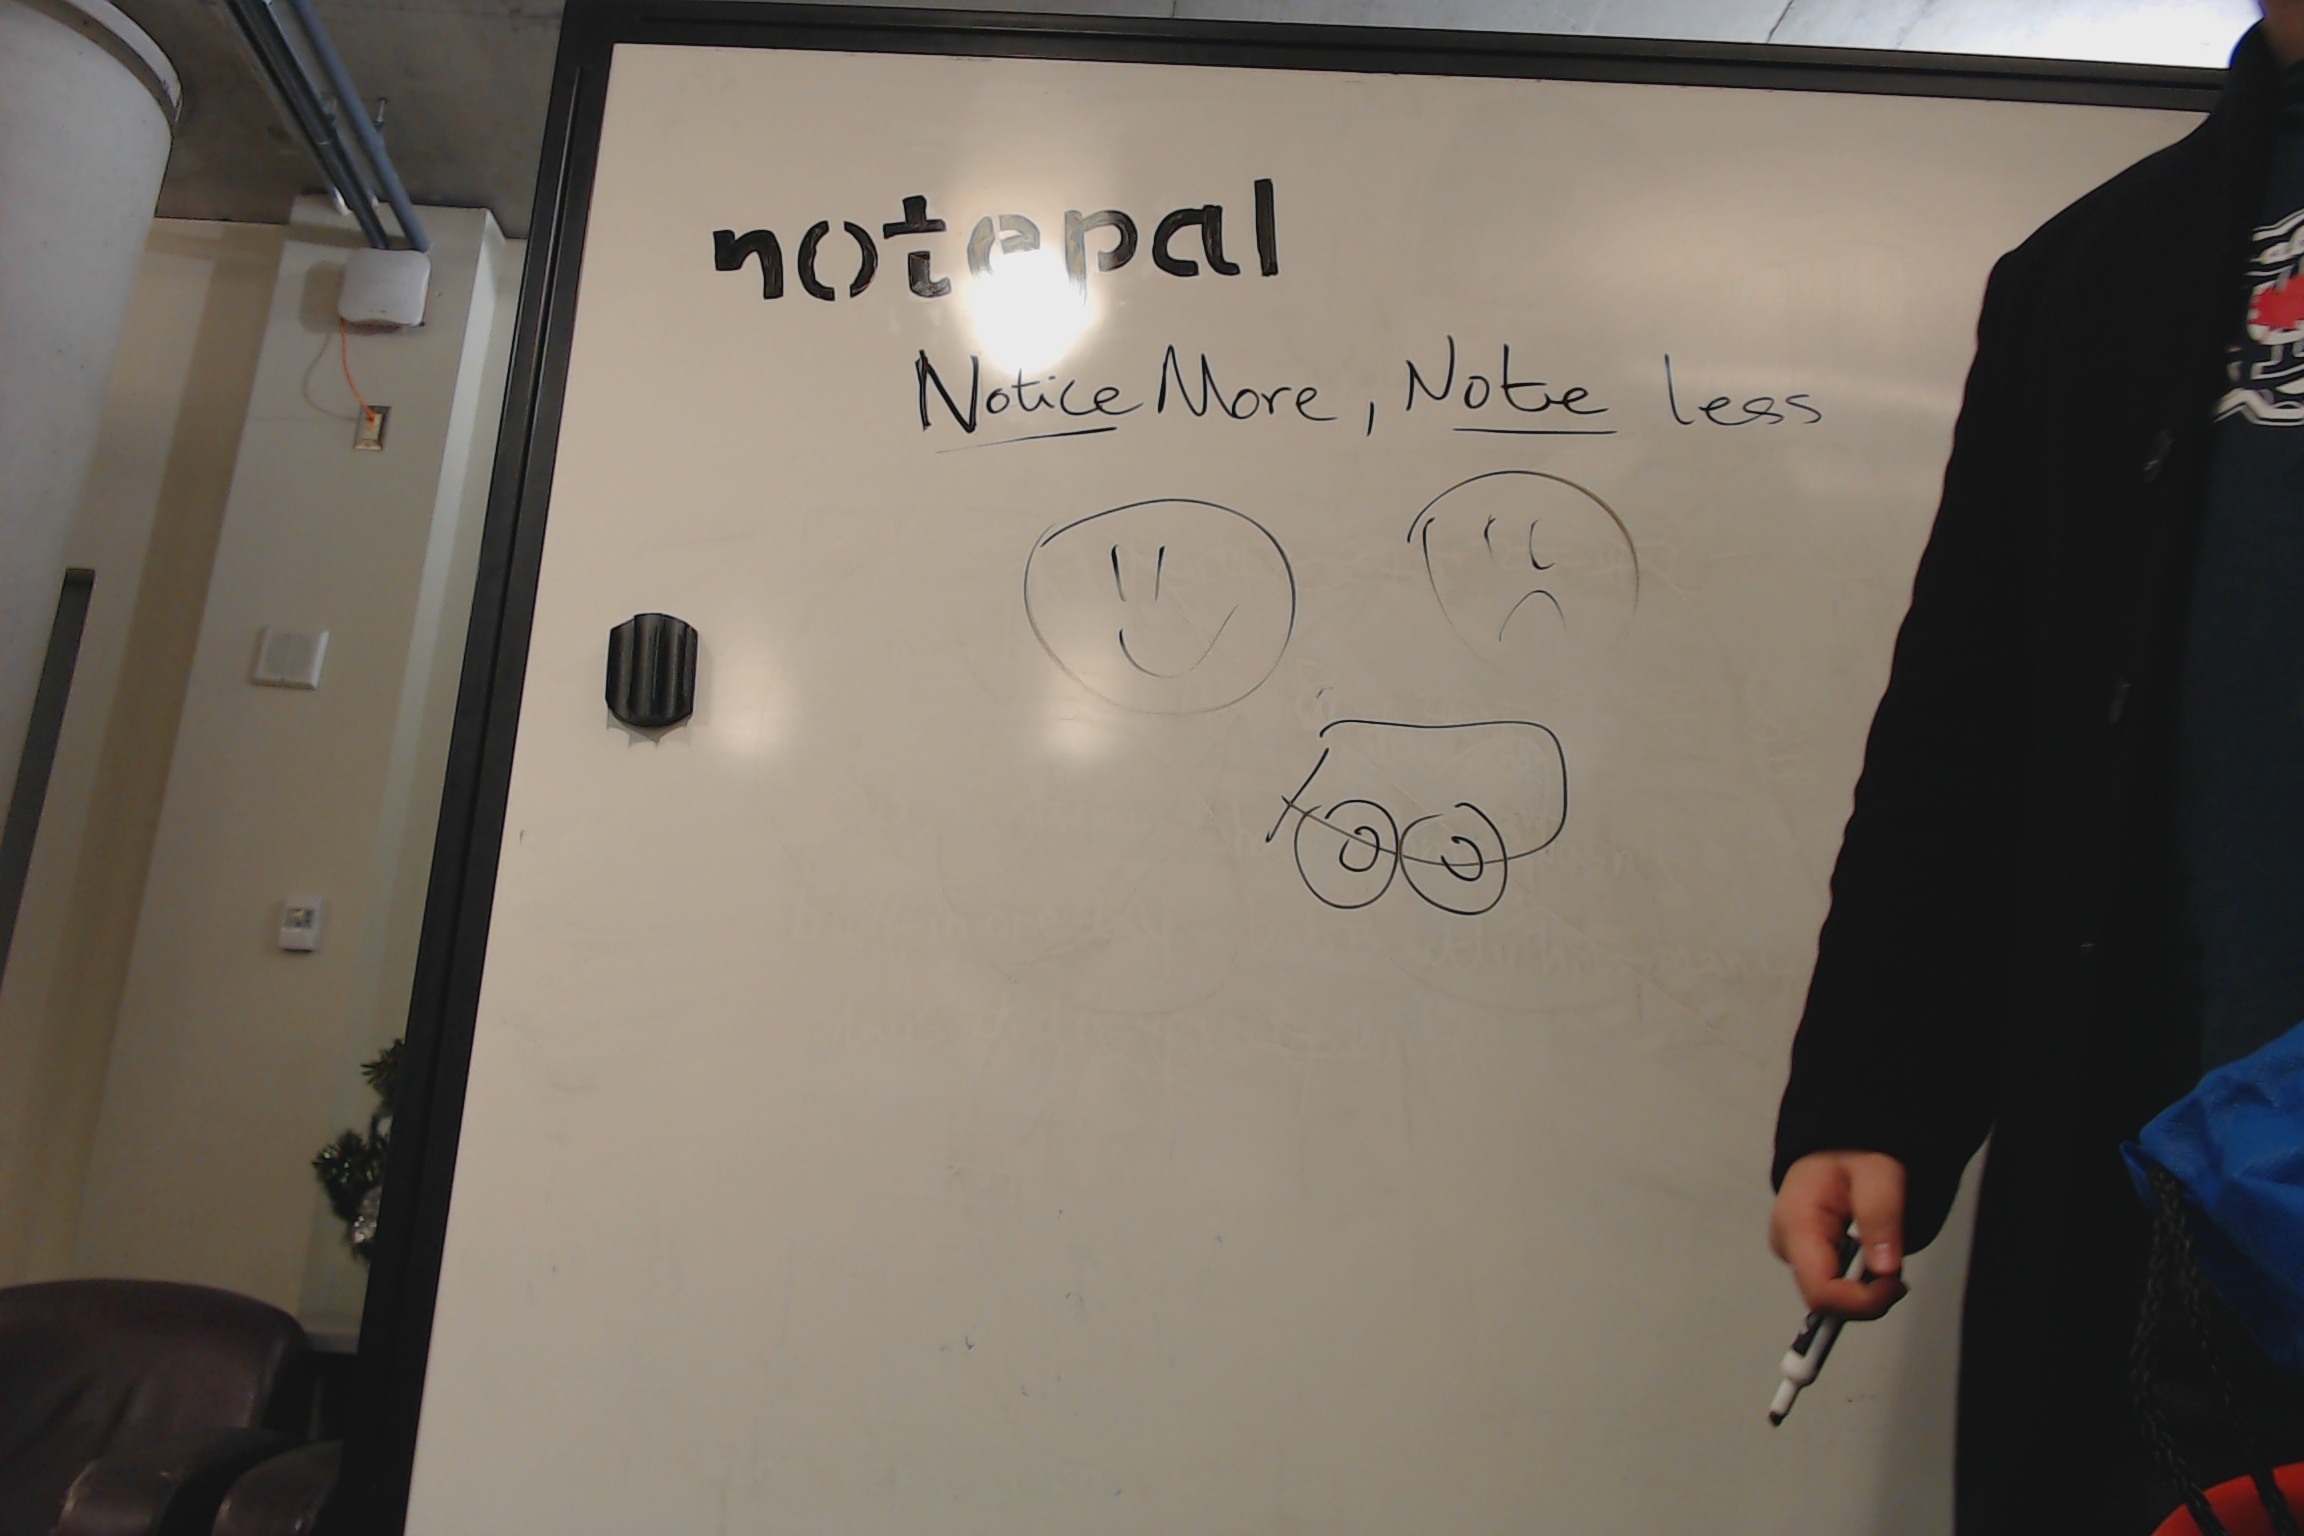 notepal
Notice More, Note less